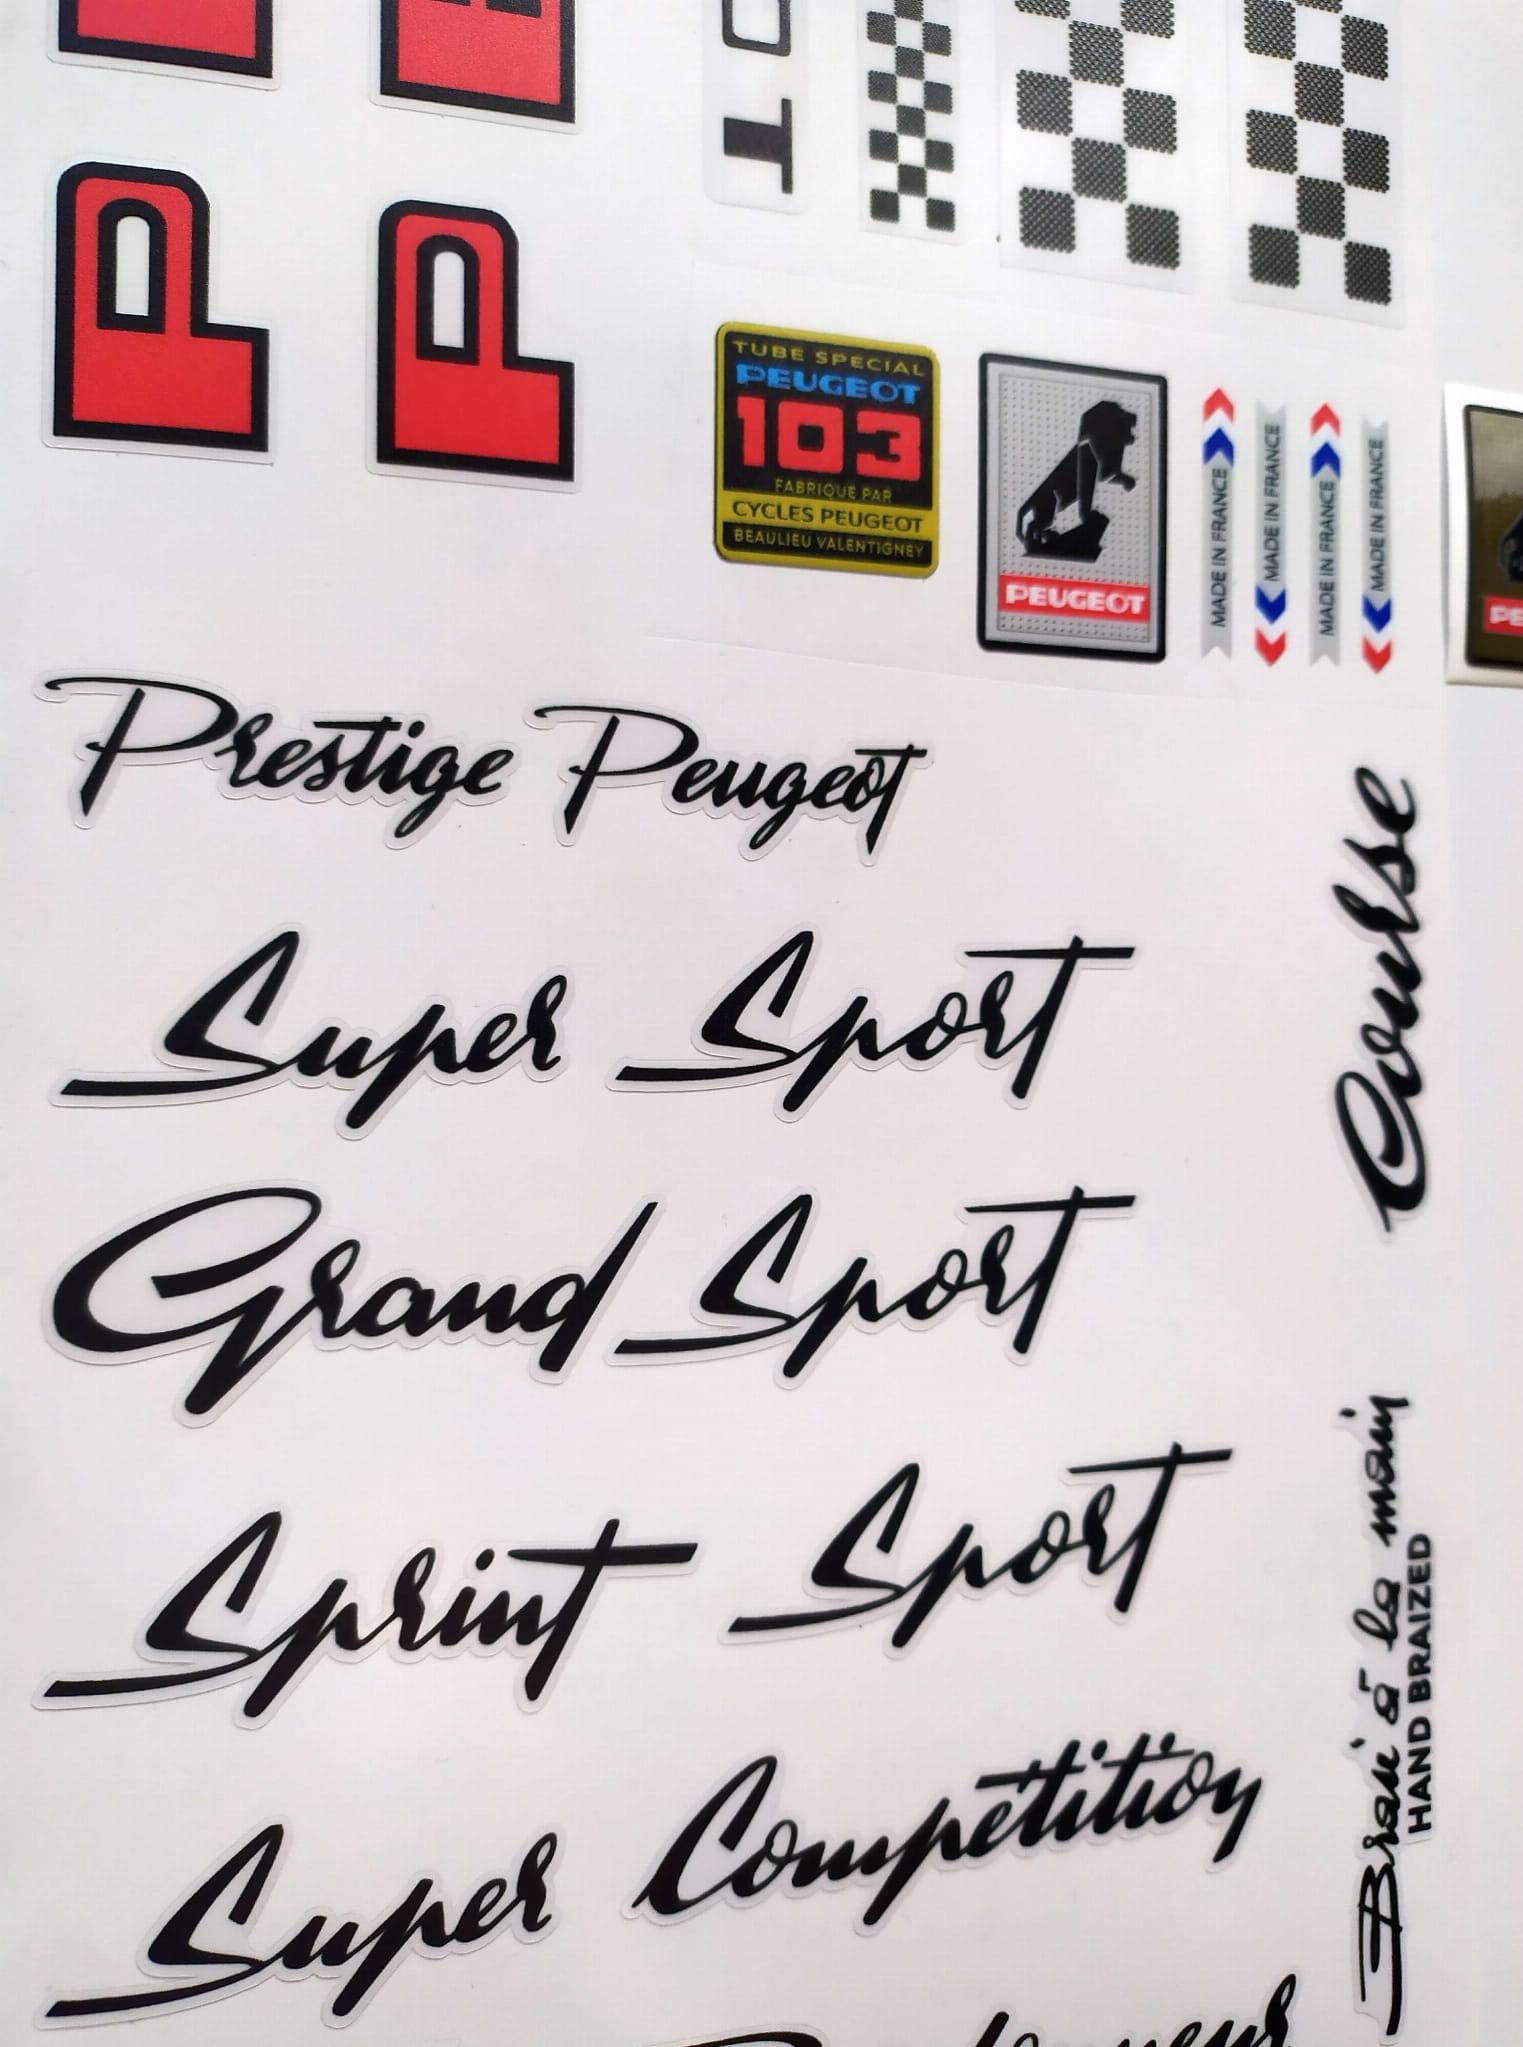 P
P
OT
TUBE SPECIAL
PEUGEOT
103
FABRIQUE PAR
CYCLES PEUGEOT
BEAULIEU VALENTIGNEY
PEUGEOT
MADE IN FRANCE
MADE IN FRANCE
MADE IN FRANCE
MADE IN FRANCE
PE
Prestige Peugeot
Course
Super Sport
Grand Sport
Sprint Sport
Super Compétition
Brasé à la main
HAND BRAIZED